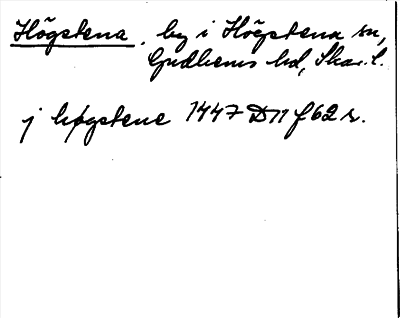 Högstena, by i Högstena sn,
Gudhems hd, Skar. l.
j høgstene 1447 D11 f 62 r.